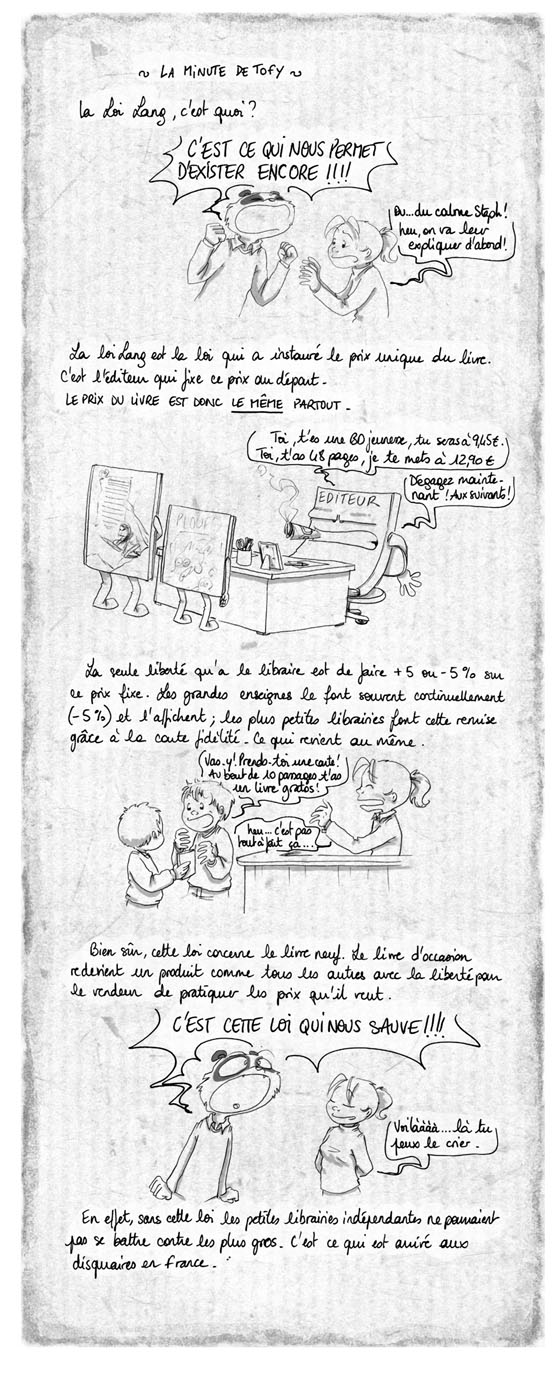 ~ LA MINUTE DE TOFY ~
la Loi Lang, c'est quoi ?
C'EST CE QUI NOUS PERMET
D'EXISTER ENCORE !!!!
Ou...du calme Steph!
heu, on va leur
expliquer d'abord!
La loi Lang est la loi qui a instauré le prix unique du livre.
C'est l'éditeur qui fixe ce prix au départ.
LE PRIX DU LIVRE EST DONC LE MÊME PARTOUT.
Toi, t'es une BD jeunesse, tu seras à 9,45€.
Toi, t'as 48 pages, je te mets à 12,90€
Dégagez mainte-
nant ! Aux suivants!
EDITEUR
PLOUF
La seule liberté qu'a le libraire est de faire +5 ou -5% sur
ce prix fixe. Les grandes enseignes le font souvent continuellement
(-5%) et l'affichent ; les plus petites librairies font cette remise
grâce à la carte fidélité. Ce qui revient au même.
Vas-y! Prends-toi une carte!
Au bout de 10 passages t'as
un livre gratos!
heu... c'est pas
tout à fait ça...
Bien sûr, cette loi concerne le livre neuf. Le livre d'occasion
redevient un produit comme tous les autres avec la liberté pour
le vendeur de pratiquer les prix qu'il veut.
C'EST CETTE LOI QUI NOUS SAUVE!!!!
Voilàààà....là tu
peux le crier.
En effet, sans cette loi les petites librairies indépendantes ne pourraient
pas se battre contre les plus gros. C'est ce qui est arrivé aux
disquaires en France.